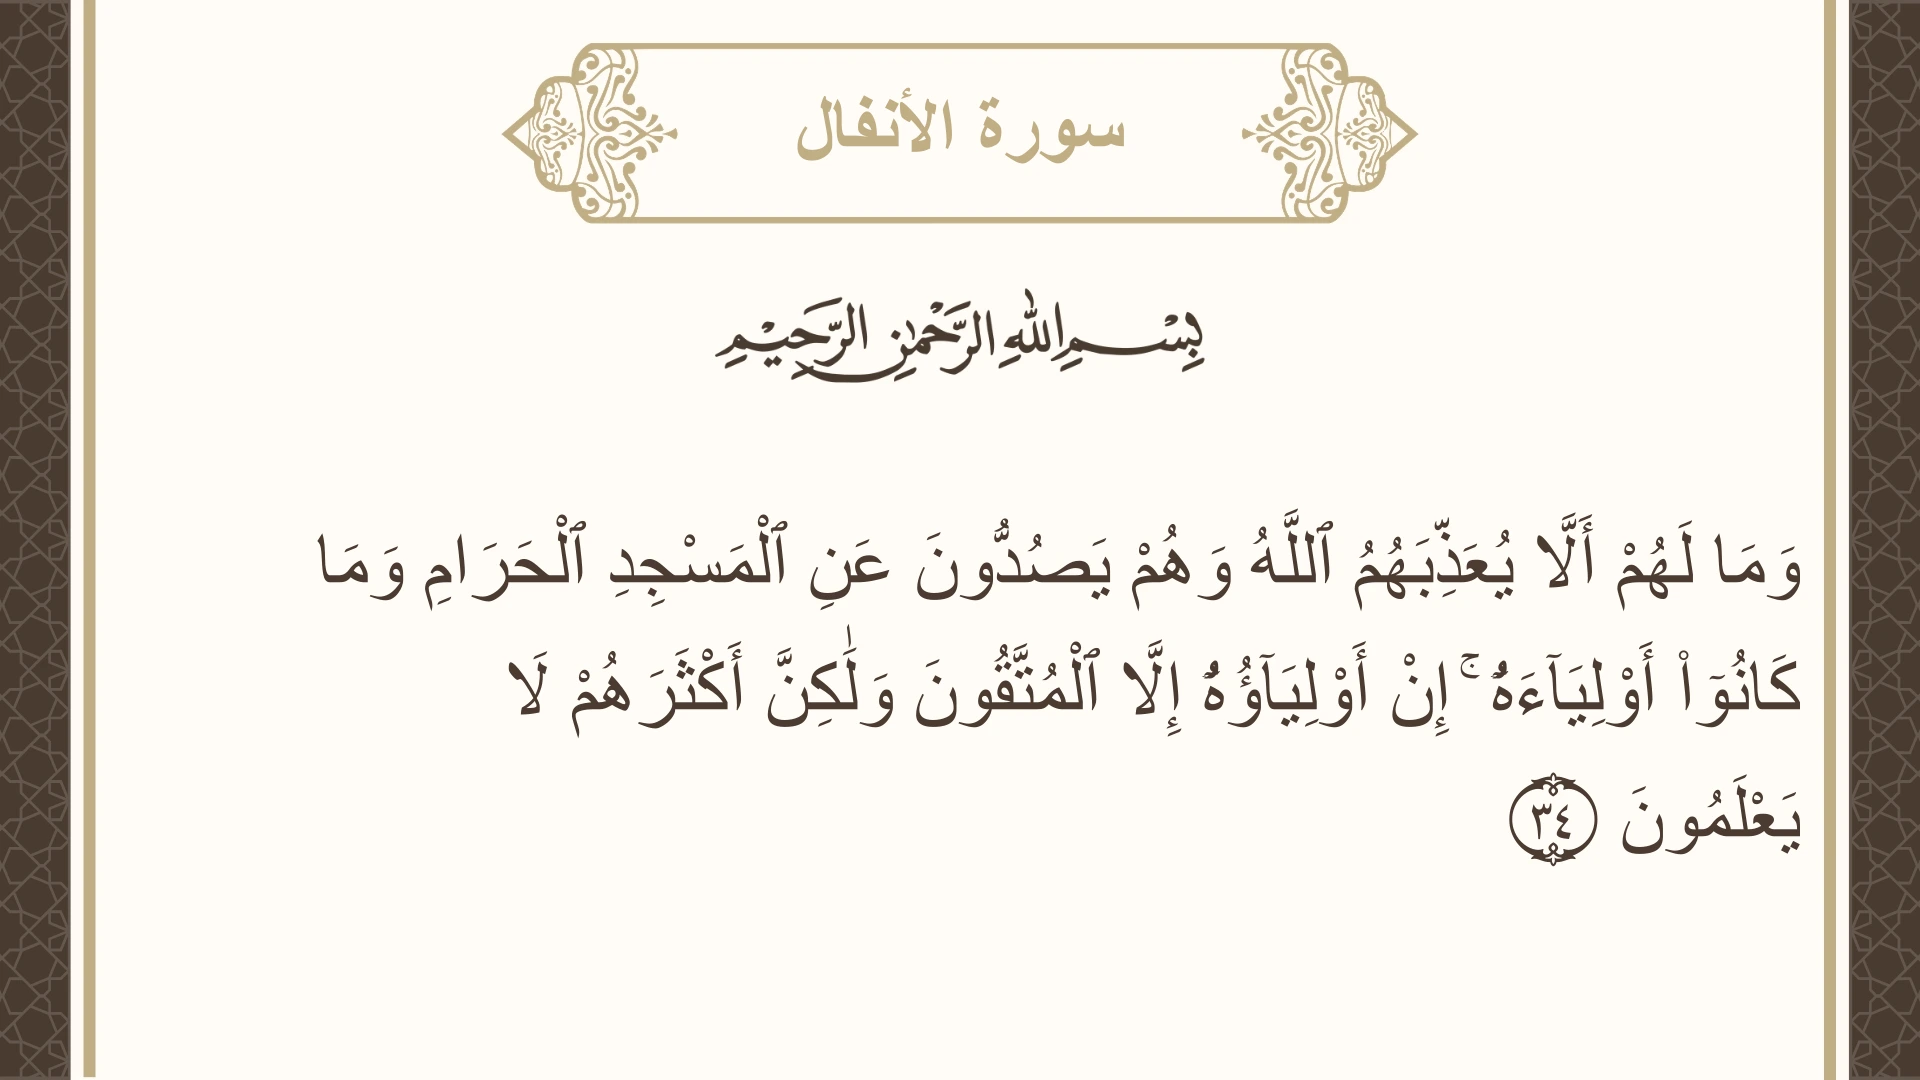 سورة الأنفال
بِسْمِ اللهِ الرَّحْمٰنِ الرَّحِيْمِ
وَمَا لَهُمْ أَلَّا يُعَذِّبَهُمُ ٱللَّهُ وَهُمْ يَصُدُّونَ عَنِ ٱلْمَسْجِدِ ٱلْحَرَامِ وَمَا
كَانُوٓا۟ أَوْلِيَآءَهُۥٓ ۚ إِنْ أَوْلِيَآؤُهُۥٓ إِلَّا ٱلْمُتَّقُونَ وَلَٰكِنَّ أَكْثَرَهُمْ لَا
يَعْلَمُونَ ٣٤